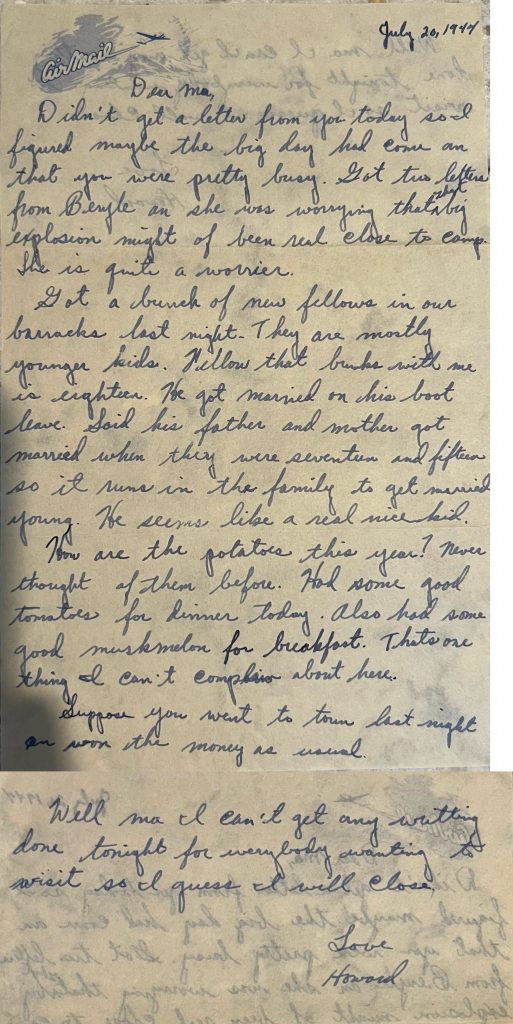 July 20, 1944
Air Mail
Dear Ma,
Didn't get a letter from you today so I
figured maybe the big day had come an
that you were pretty busy. Got two letters
from Beryle an she was worrying that that big
explosion might of been real close to camp.
She is quite a worrier.
Got a bunch of new fellows in our
barracks last night. They are mostly
younger kids. Fellow that bunks with me
is eighteen. He got married on his boot
leave. Said his father and mother got
married when they were seventeen and fifteen
so it runs in the family to get married
young. He seems like a real nice kid.
How are the potatoes this year? Never
thought of them before. Had some good
tomatoes for dinner today. Also had some
good muskmelon for breakfast. Thats one
thing I can't complain about here.
Suppose you went to town last night
an won the money as usual.
Well ma I can't get any writting
done tonight for everybody wanting to
visit so I guess I will close.
Love
Howard